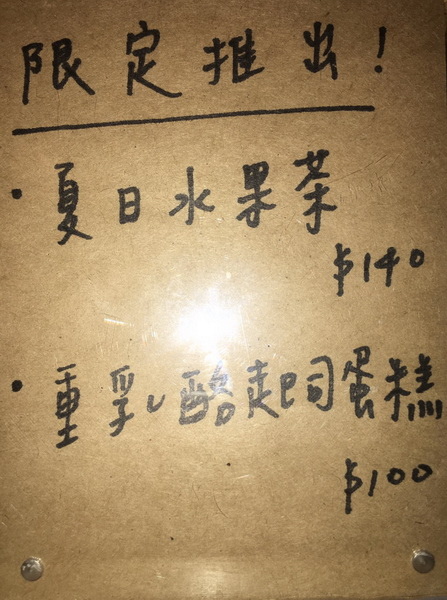 限定推出!
·夏日水果茶
$140
·重乳酪起司蛋糕
$100